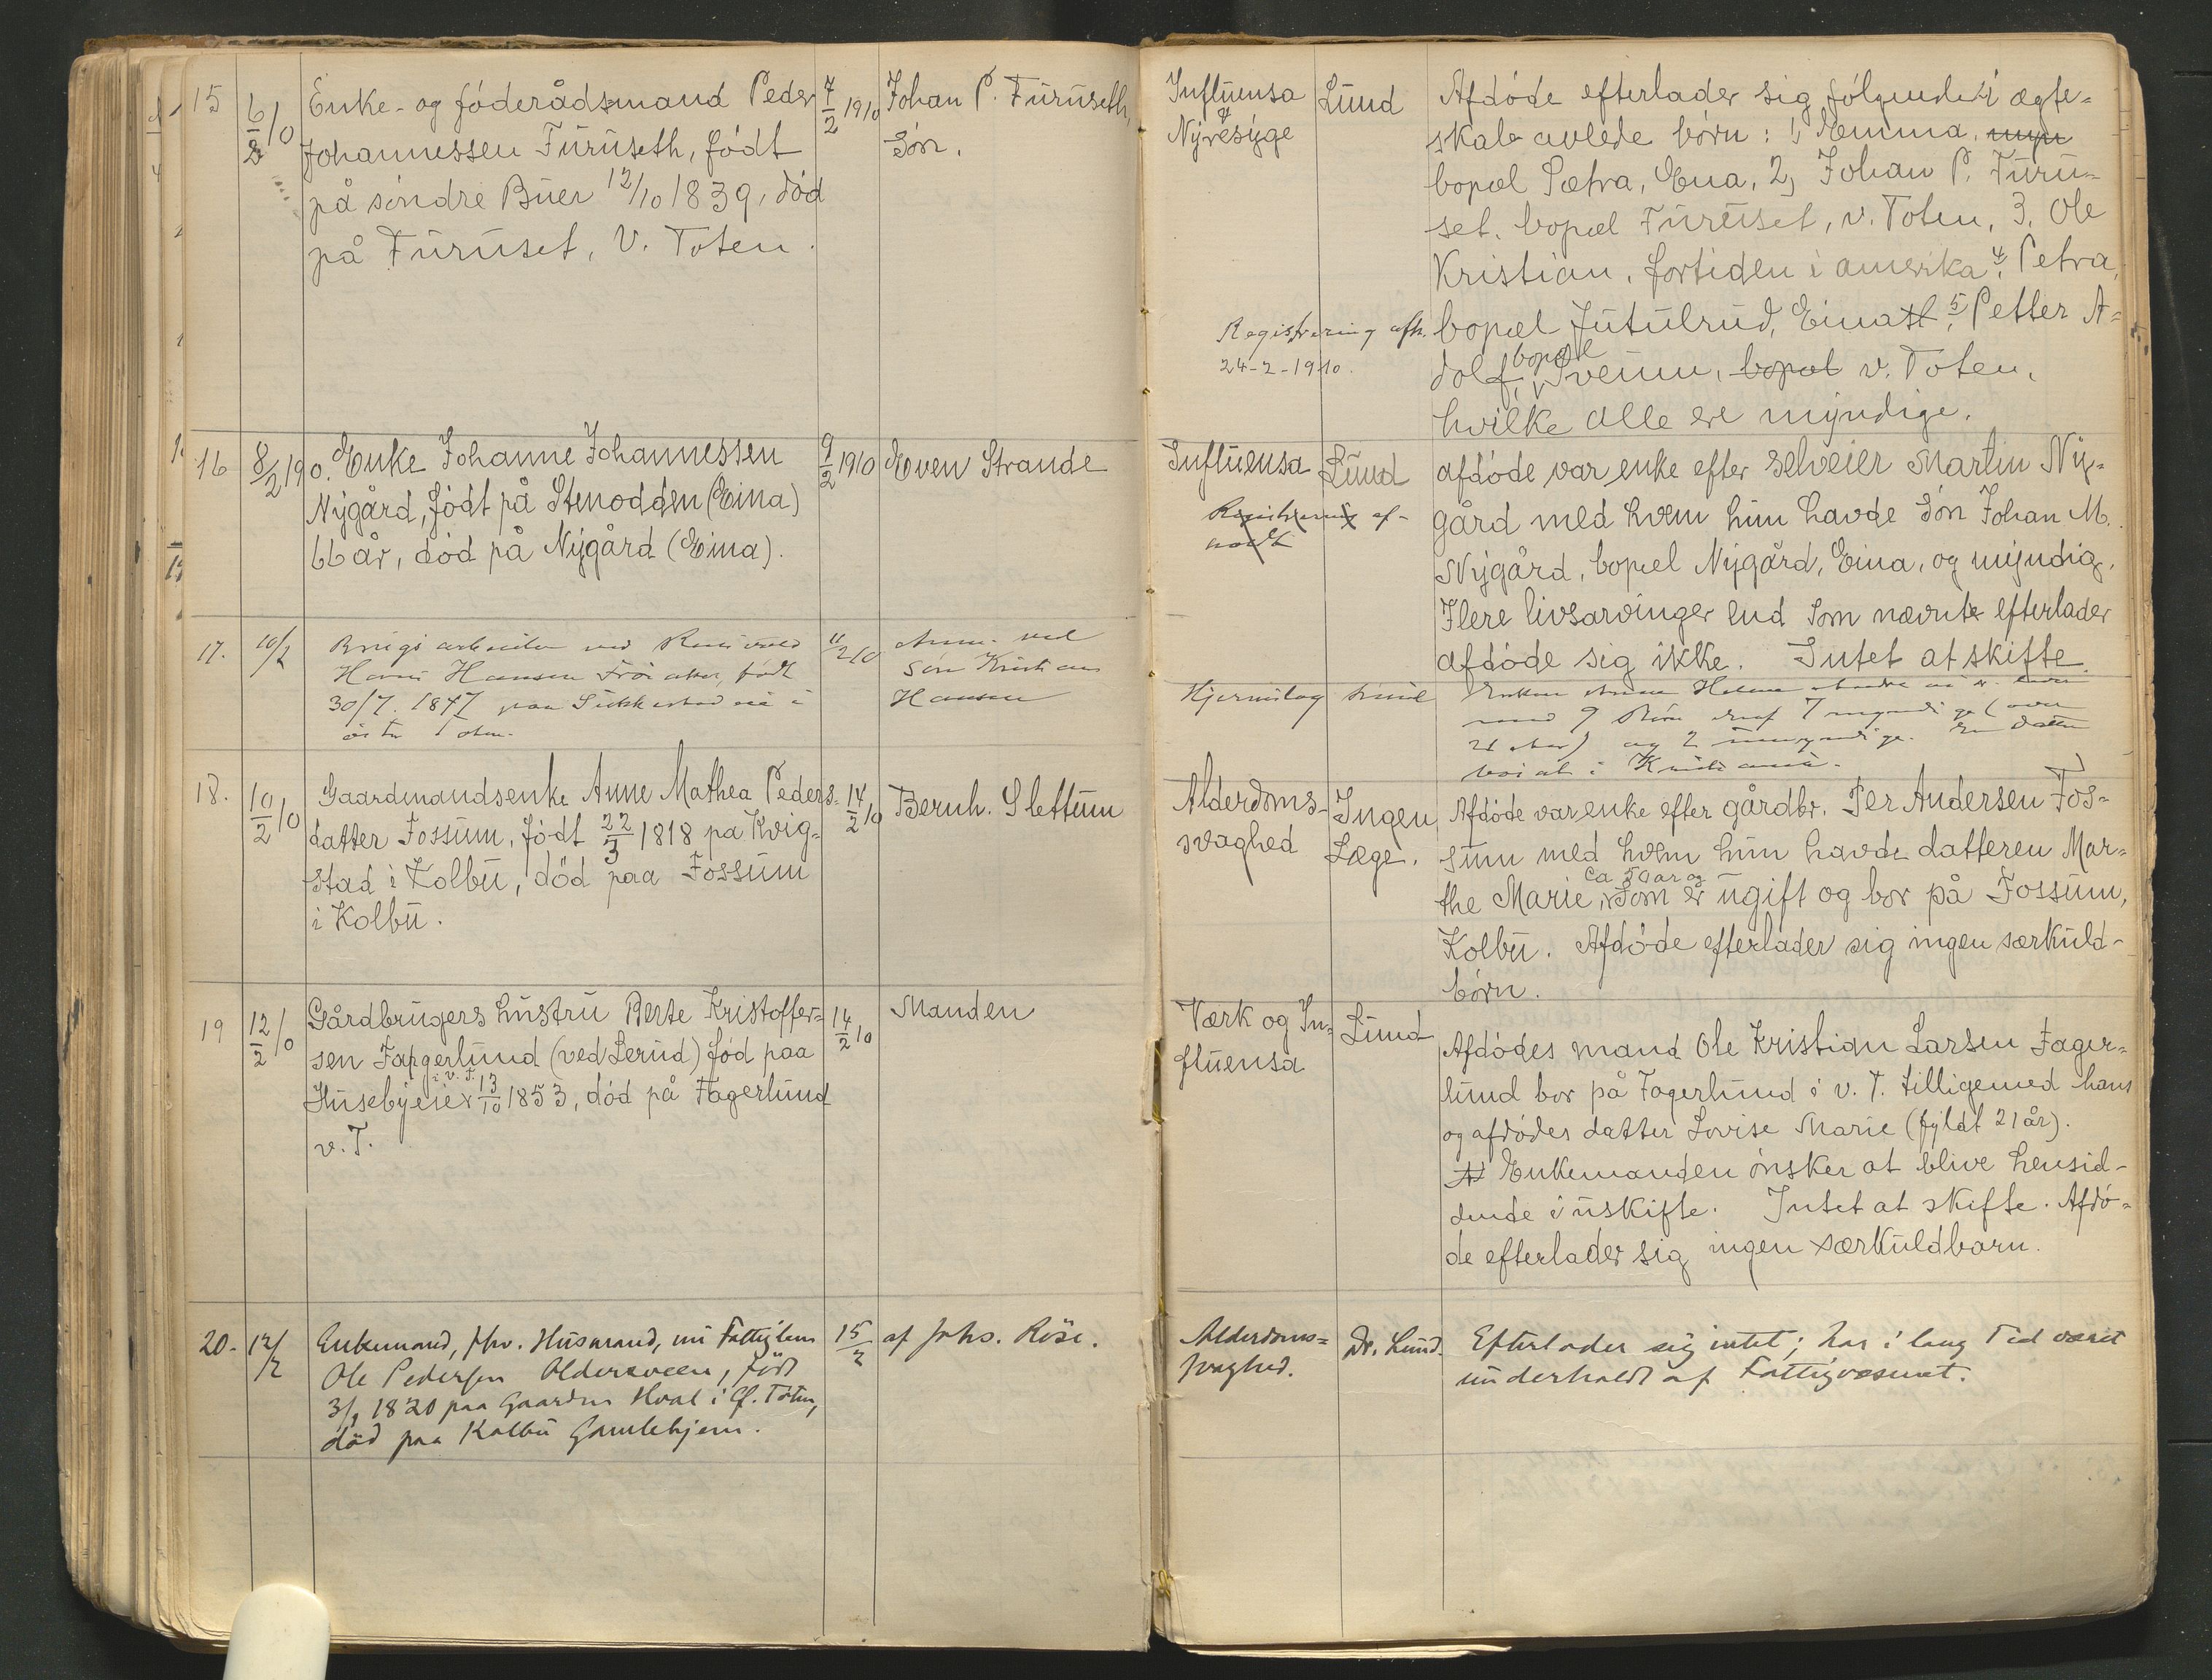 15
6/2 10
Enke- og föderådsmand Peder
Johannessen Furuseth, födt
på söndre Buer 12/10 1839, död
på Furuset, V. Toten.
7/2 1910
Johan P. Furuseth,
Sön.
Influensa
&
Nyresyge
Lund
Afdöde efterlader sig fölgende i ægte-
skab avlede börn: 1, Emma,
bopæl Sætra, Eina, 2, Johan P. Furu-
set, bopæl Furuset, v. Toten, 3, Ole
Kristian, fortiden i amerika, 4, Petra,
bopæl Jutulrud, Eina, 5, Petter A-
bopæl
dolf, Sveum, bopæl v. Toten,
hvilke alle ere myndige.
Registrering afh.
24-2-1910.
16
8/2 1910.
Enke Johanne Johannessen
Nygård, födt på Stenodden (Eina)
66 år, död på Nygård (Eina).
9/2 1910
Even Strande
Influensa
Lund
Registrering af-
afdöde var enke efter selveier Martin Ny-
gård med hvem hun havde Sön Johan M.
Nygård, bopæl Nygård, Eina, og myndig.
Flere livsarvinger end som nævnte efterlader
afdöde sig ikke. Intet at skifte.
17.
10/2
Brugsarbeider ved
Hans Hansen født
30/7 1847 paa i
østre Toten.
11/2 10
Anm. ved
Søn Kristian
Hansen
Hjerneslag
Lund
Enken Anne Helene
med 9 Børn deraf 7 myndige (over
21 Aar) og 2 umyndige. En datter
bosat i Kristiania.
18.
10/2 10
Gaardmandsenke Anne Mathea Peders-
datter Fossum, födt 22/3 1818 pa Kvig-
stad i Kolbu, död paa Fossum
i Kolbu.
14/2 10
Bernh. Slettum
Alderdoms-
svaghed
Ingen
Læge.
Afdöde var enke efter gårdbr. Per Andersen Fos-
sum med hvem hun havde datteren Mar-
ca 50 ar og
the Marie, som er ugift og bor på Fossum,
Kolbu. Afdöde efterlader sig ingen særkuld-
börn.
19
12/2 10
Gårdbrugers hustru Berte Kristoffer-
sen Fagerlund (ved Lerud) fød paa
i v. T.
Husebyeier 13/10 1853, död på Fagerlund
v. T.
14/2 10
Manden
Værk og In-
fluensa
Lund
Afdödes mand Ole Kristian Larsen Fager-
lund bor på Fagerlund i v. T. tilligemed hans
og afdödes datter Lovise Marie (fyldt 21 år).
Enkemanden önsker at blive hensid-
dende i uskifte. Intet at skifte. Afdö-
de efterlader sig ingen særkuldbarn.
20.
12/2
Enkemand, fhv. Husmand, nu Fattiglem
Ole Pedersen Oldersveen, födt
3/9 1820 paa Gaarden Hval i Ø. Toten,
död paa Kolbu Gamlehjem.
15/2
af Johs. Röse.
Alderdoms-
svaghed.
Dr. Lund.
Efterlader sig intet; har i lang Tid været
underholdt af Fattigvæsenet.